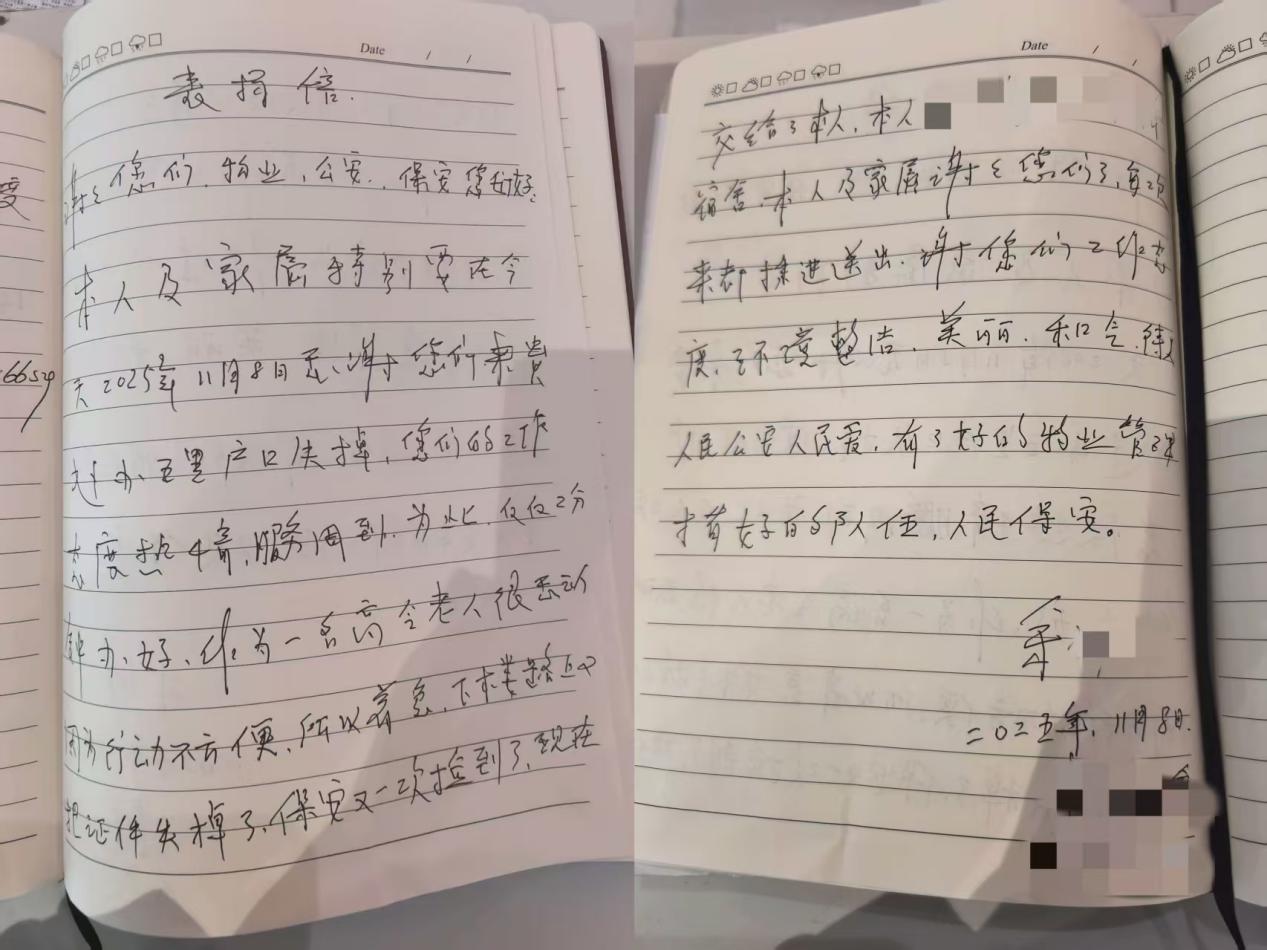 Date / /
表扬信.
谢谢您们.物业,公安,.保安您们好.
本人及家属特别要在今
天2025年11月8日无谢于您们来贵
处办.百里户口失掉,您们的工作
态度热情,服务周到.为此.仅仅2分
钟办.好.作为一名高令老人很感动
因为行动不方便,所以着急.下来楼路上又
把证件失掉了,保安又一次捡到了,现在
6652
度
Date / /
交给了本人,本人
宿舍.本人及家属谢谢您们了,每次
来都接进送出.谢于您们工作态
度.环境整洁、美丽.和令.待人
人民公安人民爱,有了好的物业管理
才有好的部队伍,人民保安。
二0二五年.11月8日.